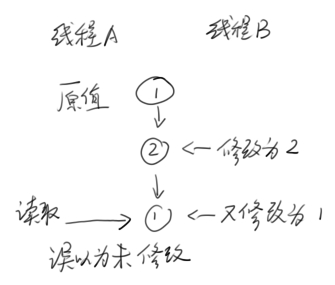 线程A 线程B
原值 1
2 ←修改为2
读取 → 1 ←又修改为1
误以为未修改